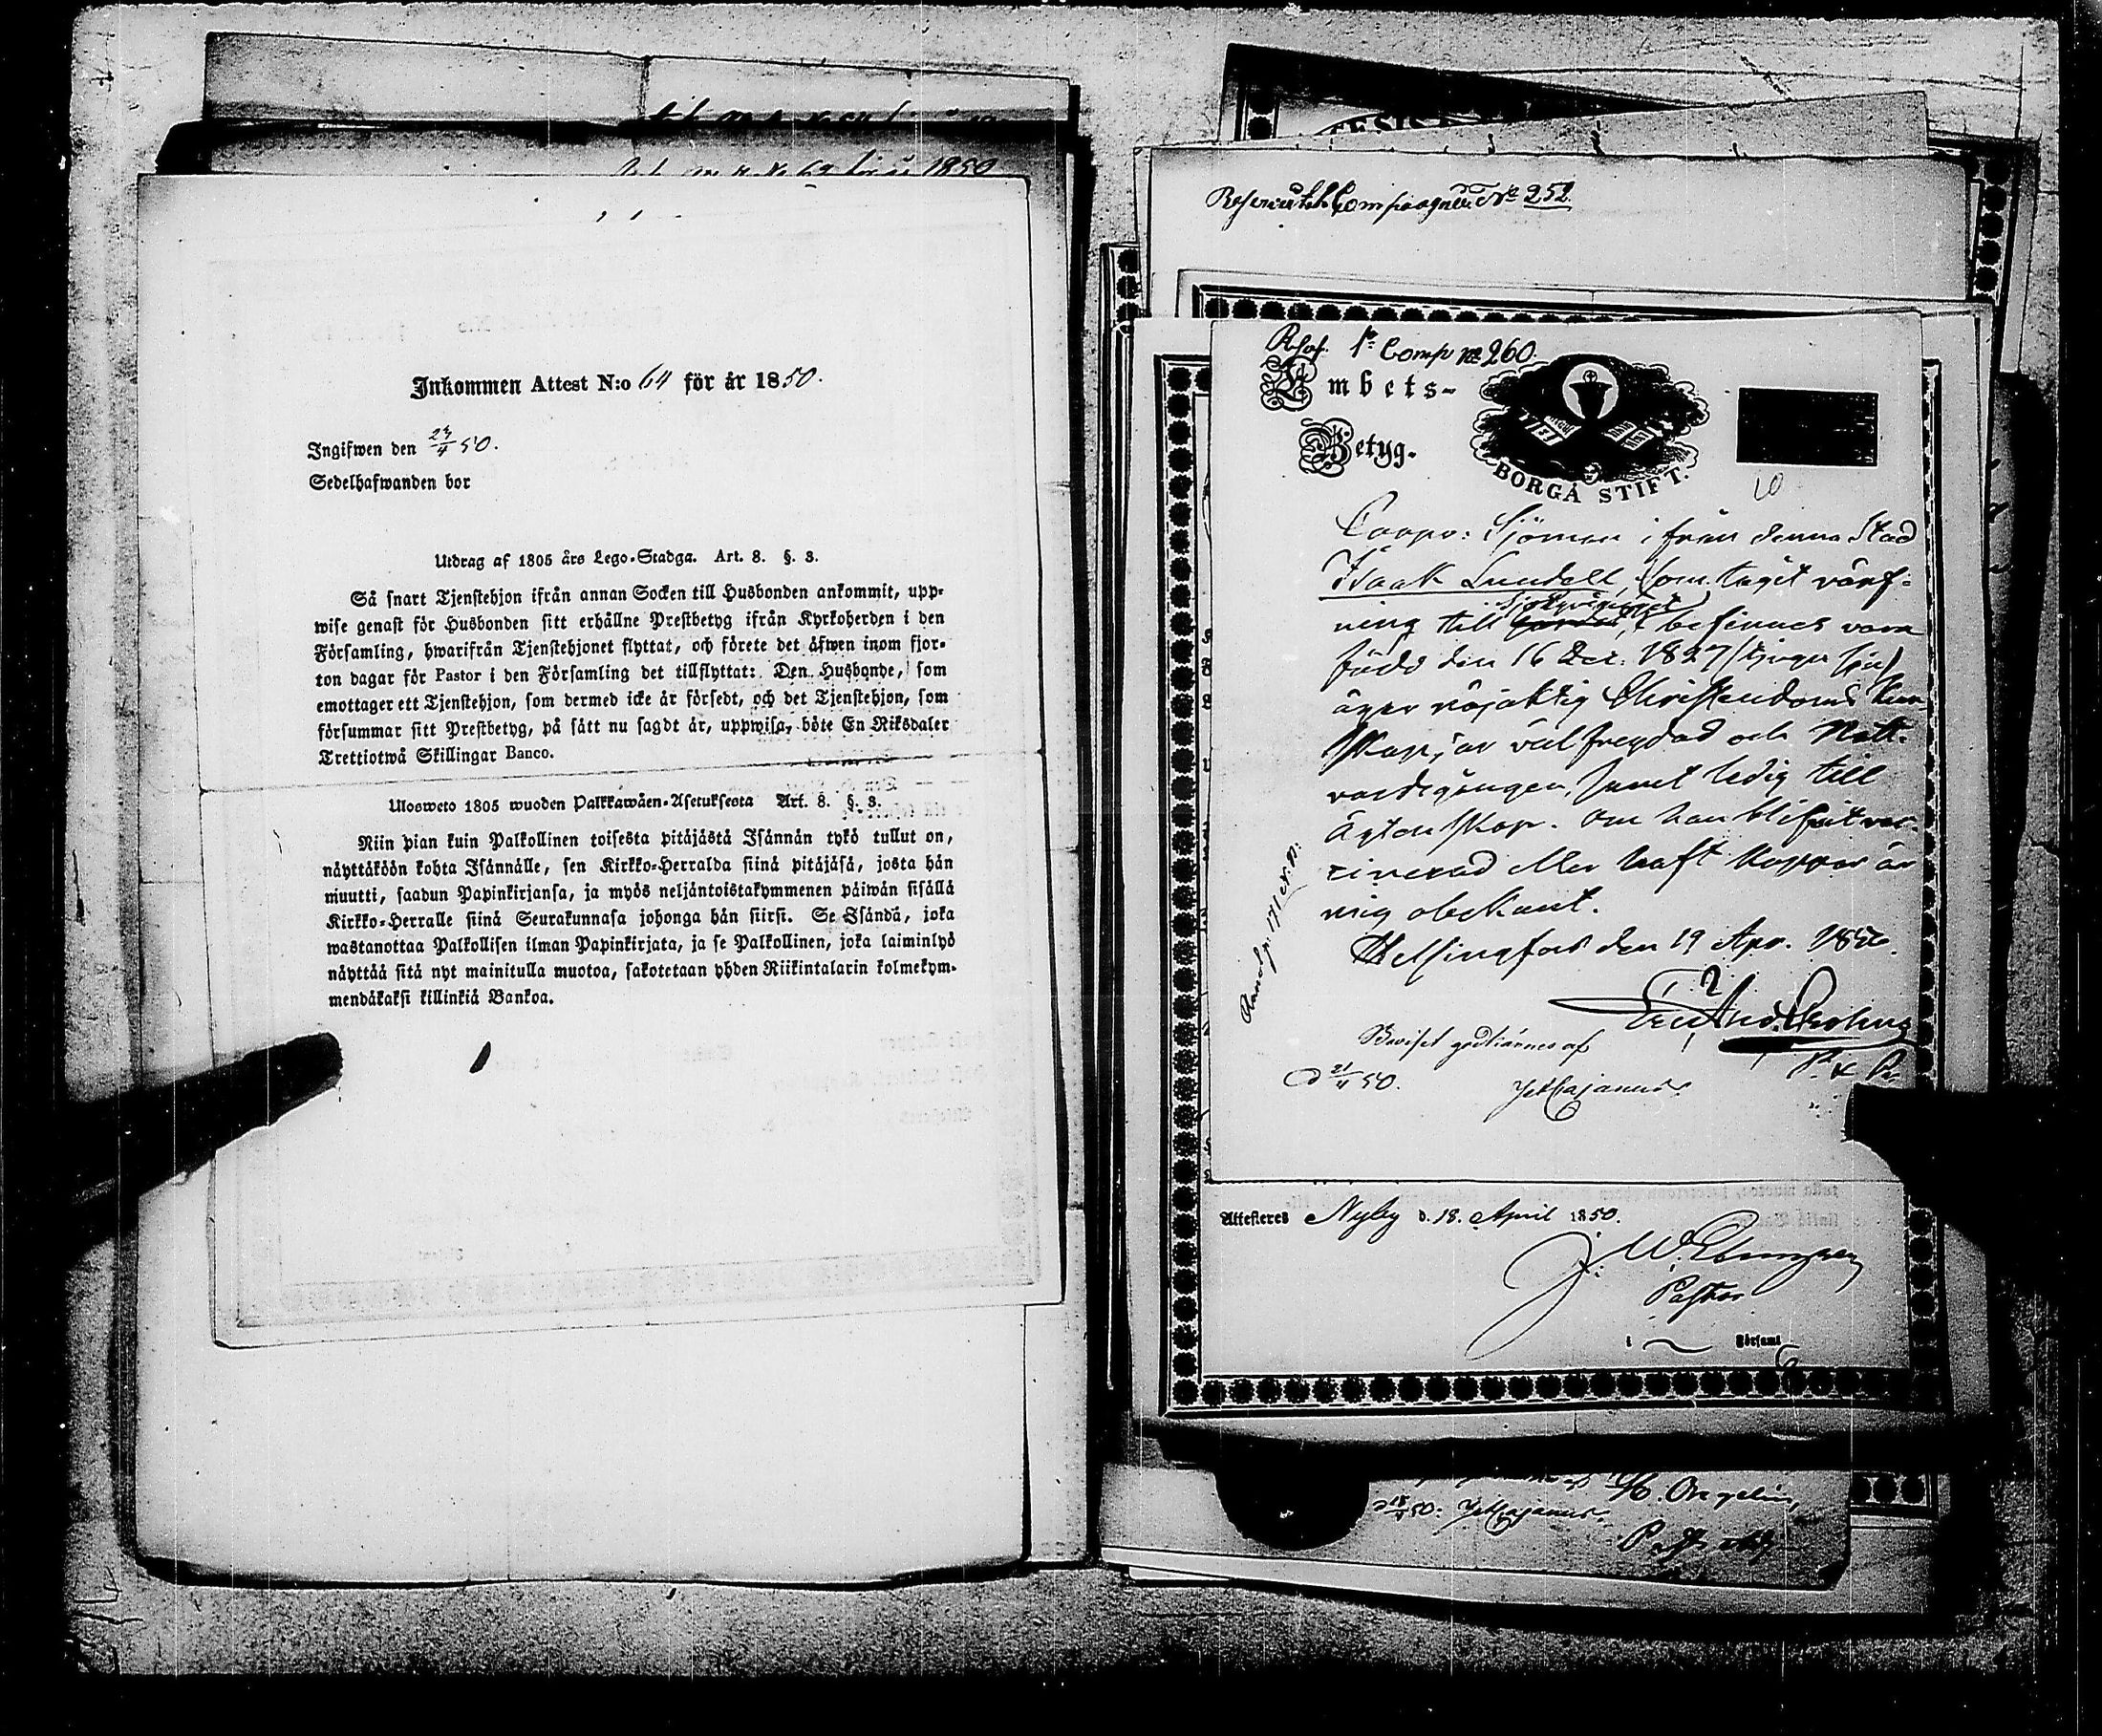 1850
Inkommen Attest N:o 64 för år 1850.
Ingifwen den 24/4 50.
Sedelhafwanden bor
Utdrag af 1805 års Lego-Stadga. Art. 8. §. 3.
Så snart Tjenstehjon ifrån annan Socken till Husbonden ankommit, upp-
wise genast för Husbonden sitt erhållne Prestbetyg ifrån Kyrkoherden i den
Församling, hwarifrån Tjenstehjonet flyttat, och förete det äfwen inom fjor-
ton dagar för Pastor i den Församling det tillflyttat: Den Husbonde, som
emottager ett Tjenstehjon, som dermed icke är försedt, och det Tjenstehjon, som
försummar sitt Prestbetyg, på sätt nu sagdt är, uppwisa, böte En Riksdaler
Trettiotwå Skillingar Banco.
Ulosweto 1805 wuoden Palkkawäen-Asetuksesta Art. 8. §. 3.
Niin pian kuin Palkollinen toisesta pitäjästä Isännän tykö tullut on,
näyttäköön kohta Isännälle, sen Kirkko-Herralda siinä pitäjäsä, josta hän
muutti, saadun Papinkirjansa, ja myös neljäntoistakymmenen päiwän sisällä
Kirkko-Herralle siinä Seurakunnasa johonga hän siirsi. Se Isändä, joka
wastanottaa Palkollisen ilman Papinkirjata, ja se Palkollinen, joka laiminlyö
näyttää sitä nyt mainitulla muotoa, sakotetaan yhden Riikintalarin kolmekym-
mendäkaksi killinkiä Bankoa.
Compagnie No 252
1e Comp No 260.
Embets-
Betyg.
BORGÅ STIFT.
10
Sjöman i från denna Stad
Isaak Lundell, som tagit värf-
ning till befinnes vara
född den 16 Dec. 1827 (tjugu sju)
äger nöjaktig Christendoms kun-
skap, är väl frejdad och Natt-
vardsgången, samt ledig till
ägtenskap. Om han blifvit vac-
cinerad eller haft koppor är
mig obekant.
Helsingfors den 19 Apr. 1850.
Beviset godkännes af
d 21/4 50. Cajanus
Attesteres Nyby d. 18. April 1850.
J. W.
Pastor
i Församl
18/4 50. Cajanus